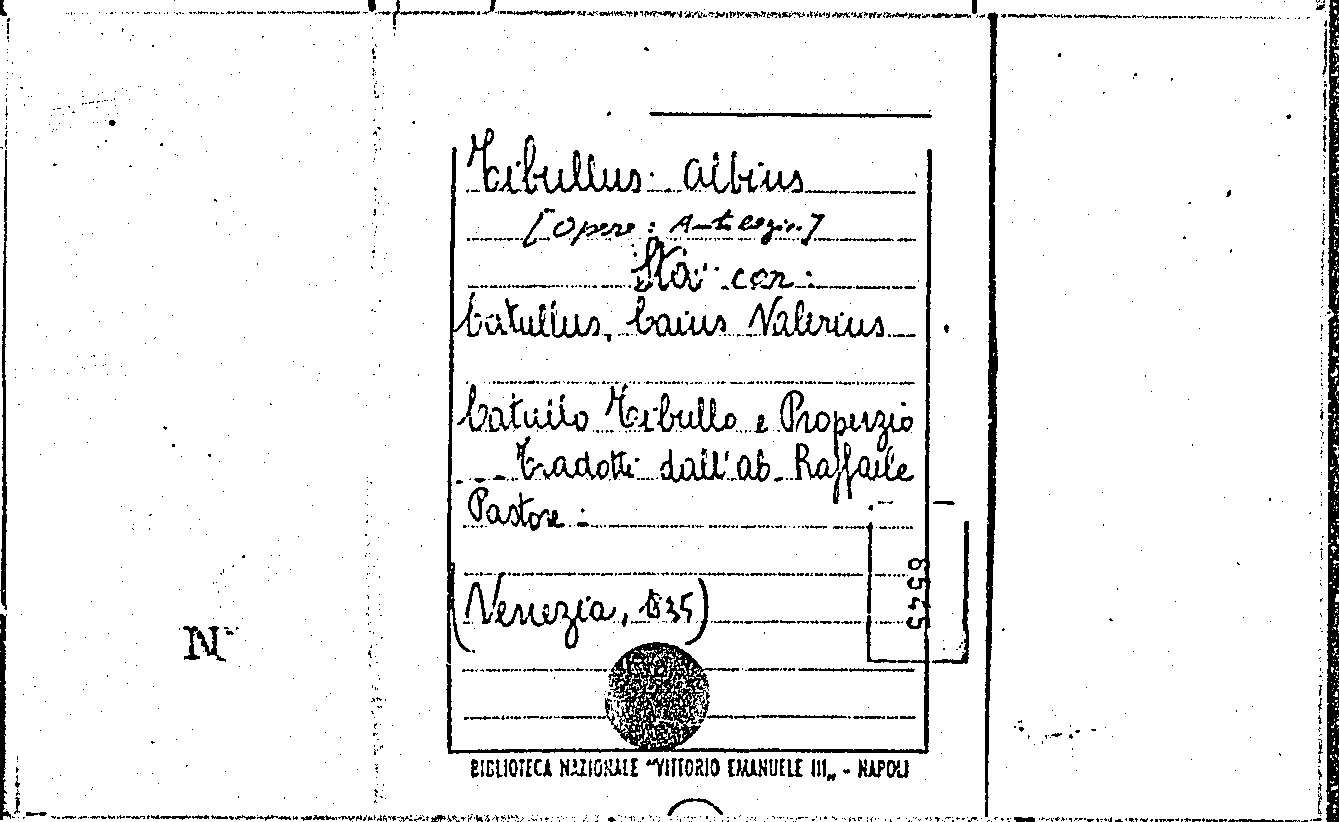 Tibullus Albius
[Opere: Antologia]
Sta con:
Catullus, Caius Valerius
Catullo Tibullo e Properzio
Tradotti dall'ab. Raffaele
Pastore:
6545
(Venezia, 835)
N
BIBLIOTECA NAZIONALE "VITTORIO EMANUELE III„ - NAPOLI